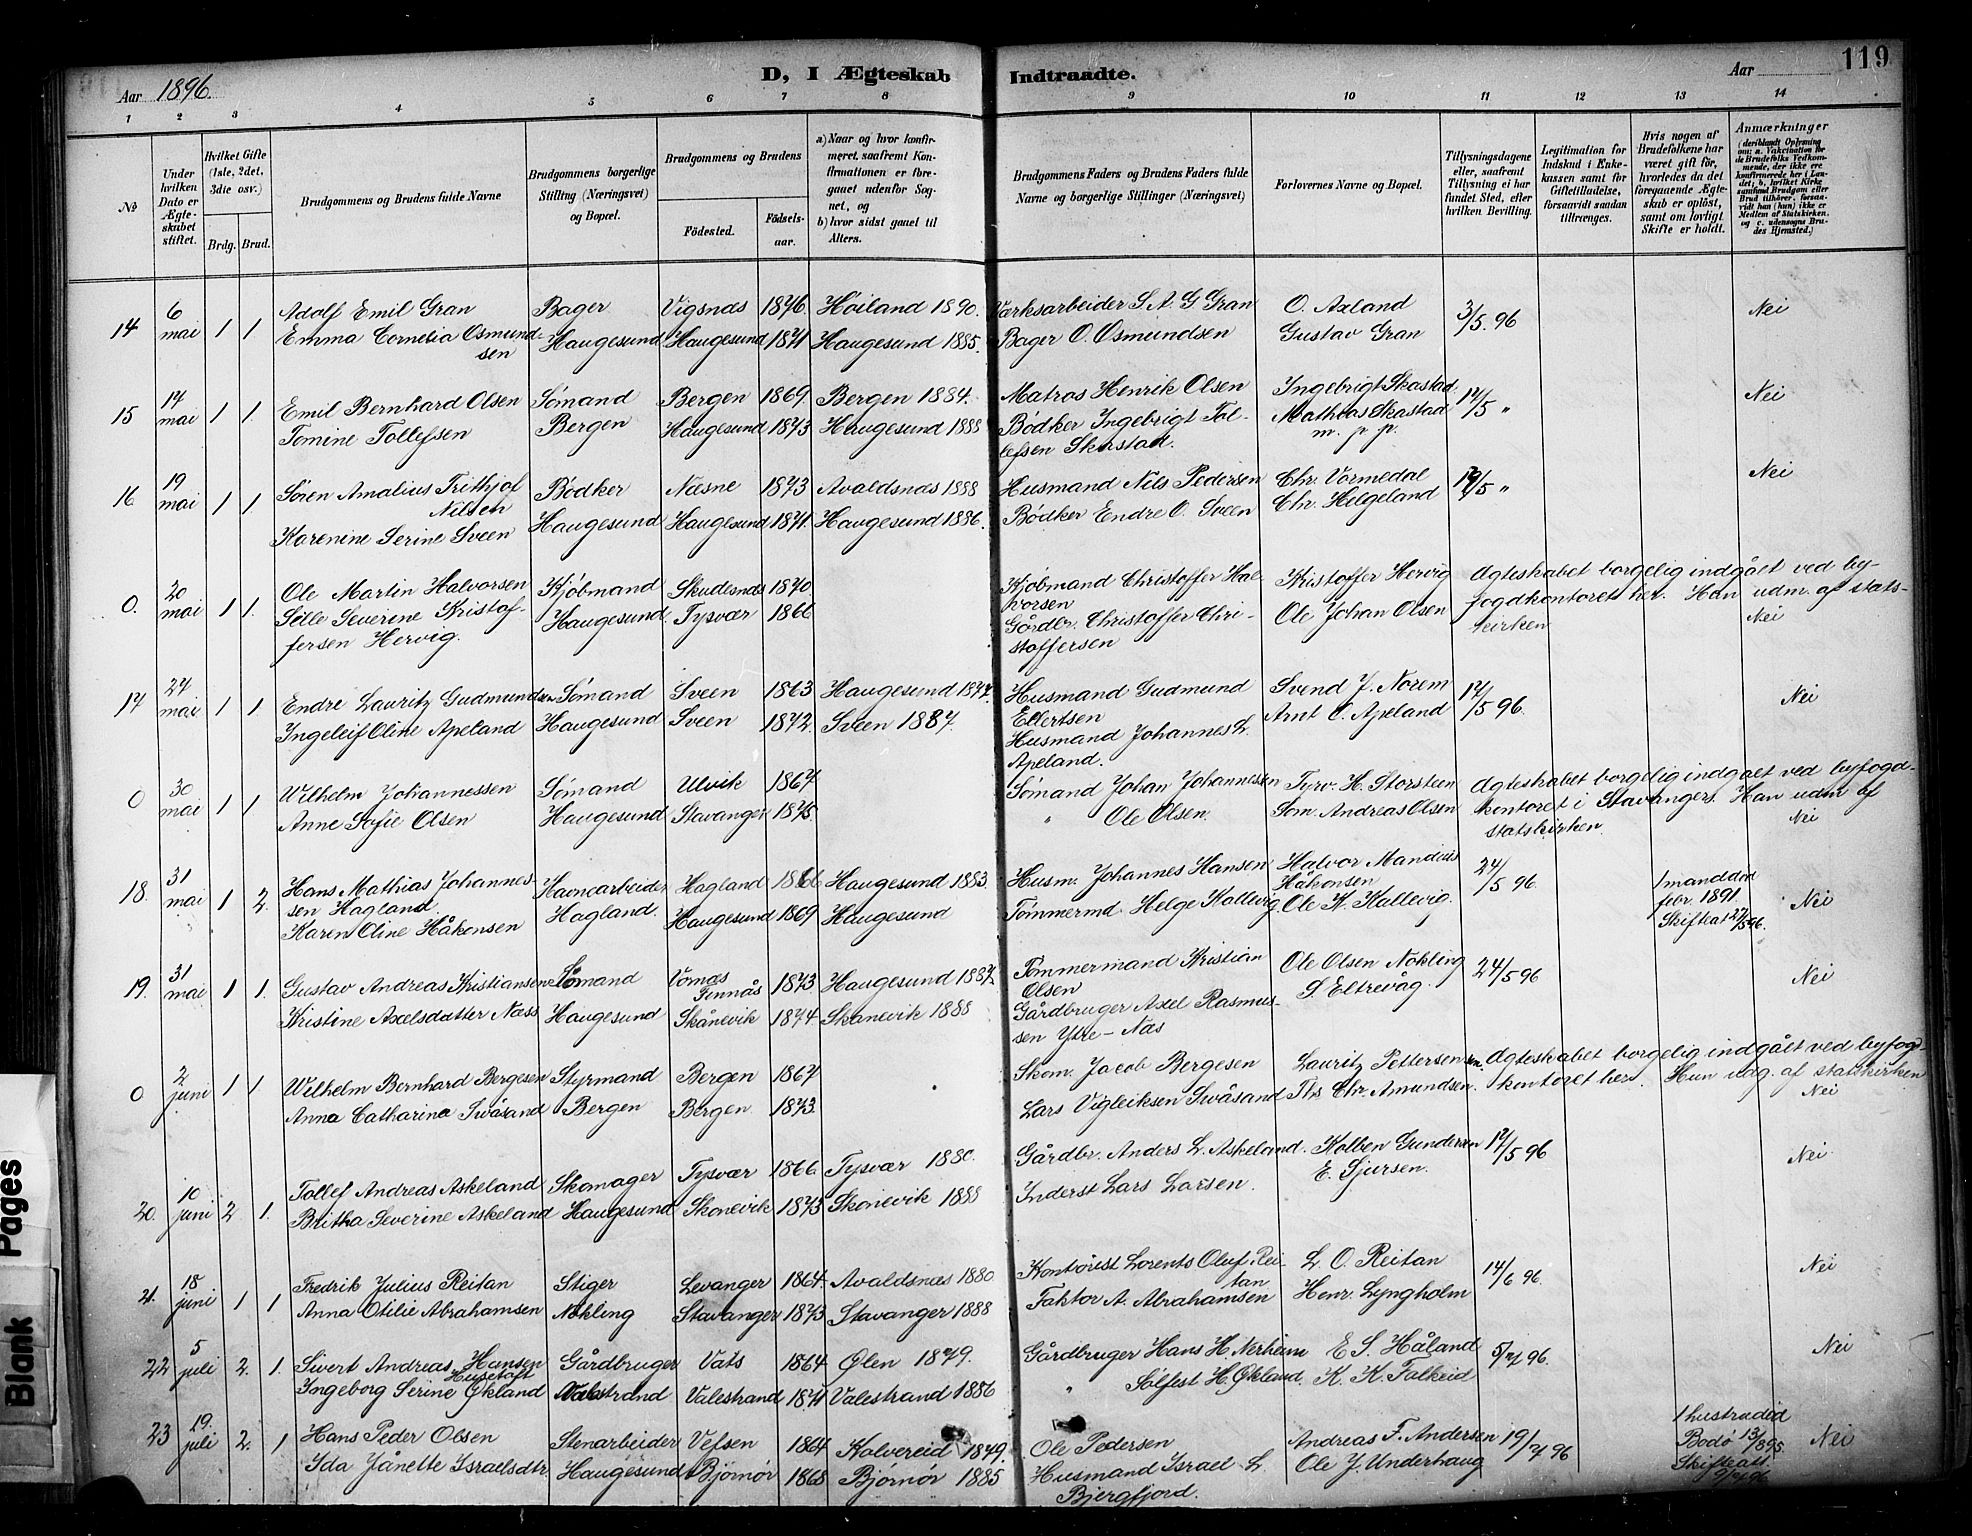 119
D, I Ægteskab Indtraadte.
Aar 1896. Aar
1 2 3 4 5 6 7 8 9 10 11 12 13 14
№
Under hvilken Dato er Ægteskabet stiftet.
Hvilket Gifte (1ste, 2det, 3die osv.)
Brdg. Brud.
Brudgommens og Brudens fulde Navne
Brudgommens borgerlige Stilling (Næringsvei) og Bopæl.
Brudgommens og Brudens
Födested. Födselsaar.
a) Naar og hvor konfirmeret, saafremt Konfirmationen er foregaaet udenfor Sognet, og
b) hvor sidst gaaet til Alters.
Brudgommens Faders og Brudens Faders fulde Navne og borgerlige Stillinger (Næringsvei)
Forlovernes Navne og Bopæl.
Tillysningsdagene eller, saafremt Tillysning ei har fundet Sted, efter hvilken Bevilling.
Legitimation for Indskud i Enkekassen samt for Giftetilladelse, forsaavidt saadan tiltrænges.
Hvis nogen af Brudefolkene har været gift för, hvorledes da det foregaaende Ægteskab er oplöst, samt om lovligt Skifte er holdt.
Anmærkninger (deriblandt Oplysning om: a. Vakcination for de Brudefolks Vedkommende, der ikke ere konfirmerede her i Landet; b. hvilket Kirkesamfund Brudgom eller Brud tilhører, forsaavidt han (hun) ikke er Medlem af Statskirken, og c. udensogns Brudes Hjemsted.)
14 6 mai 1 1. Adolf Emil Gran Bager Vigsnæs 1876. Høiland 1890. Værksarbeider S. A. G Gran O. Axland 3/5. 96 Nei
Emma Cornelia Osmundsen Haugesund Haugesund 1871 Haugesund 1885. Bager O. Osmundsen Gustav Gran
15 14 mai 1 1. Emil Bernhard Olsen Sømand Bergen 1869. Bergen 1884. Matros Henrik Olsen Ingebrigt Skastad 17/5 " Nei
Tomine Tollefsen Bergen Haugesund 1873 Haugesund 1888 Bødker Ingebrigt Tollefsen Skastad. Mathias Skastad m. p. p.
16 19 mai 1 1 Søren Amalius Frithjof Nilsen Bødker Næsne 1873 Avaldsnæs 1888 Husmand Nils Pedersen Chr. Vormedal /5 " Nei
Karenine Serine Sveen Haugesund Haugesund 1871. Haugesund 1886. Bødker Endre O. Sveen Chr. Helgeland
0. 20 mai 1 1. Ole Martin Halvorsen Kjøbmand Skudesnæs 1870. Kjøbmand Christoffer Halvorsen Kristoffer Hervig Ægteskabet borgelig indgået ved byfogdkontoret her. Han udm. af statskirken Nei
Sille Severine Kristoffersen Hervig. Haugesund. Tysvær 1866 Gårdbr. Christoffer Christoffersen Ole Johan Olsen
17 27 mai 1 1. Endre Lauritz Gudmundsen Sømand Sveen 1863 Haugesund 1877. Husmand Gudmund Ellertsen Svend J. Norem 17/5 96. Nei
Ingeleif Oline Apeland Haugesund Sveen 1872. Sveen 1887. Husmand Johannes L. Apeland. Arnt O. Apeland
0 30 mai 1 1 Wilhelm Johannessen Sømand Ulvik 1867. Sømand Johan Johannesen Tyrv. H. Storsteen Ægteskabet borgelig indgaet ved byfogdkontoret i Stavanger. Han udm af statskirken. Nei
Anne Sofie Olsen Haugesund Stavanger 1875. " Ole Olsen. Søm. Andreas Olsen
18. 31 mai 1 2. Hans Mathias Johannessen Hagland Havnearbeider Hagland 1866 Haugesund 1883. Husm. Johannes Hansen Halvor Mandius Håkonsen 24/5 96. 1 mand død febr. 1891. Skifteat 27/5 96. Nei
Karen Oline Håkonsen Hagland. Haugesund 1869 Haugesund Tømmermd Helge Kallevig Ole K. Kallevig.
19. 31 mai 1 1. Gustav Andreas Kristiansen Sømand Vornæs 1873 Haugesund 1887. Tømmermand Kristian Olsen Ole Olsen Nøkling 24/5 96 Nei
Kristine Axelsdatter Næss Haugesund Skånevik 1874 Skånevik 1888 Gårdbruger Axel Rasmussen Ytre-Næs S. Eltrevåg.
0 2 juni 1 1. Wilhelm Bernhard Bergesen Styrmand Bergen 1867 Skom. Jacob Bergesen Lauritz Pettersen Ægteskabet borgelig indgået ved byfogdkontoret her. Hun udg. af statskirken Nei
Anna Catharina Swåsand Bergen Bergen 1873. Lars Vigleiksen Swåsand Ths Chr. Amundsen.
20. 10 juni 2 1. Tollef Andreas Askeland Skomager Tysvær 1866 Tysvær 1880. Gårdbr. Anders L. Askeland. Kolben Gundersen 17/5 96 Nei
Britha Severine Askeland Haugesund Skonevik 1873 Skonevik 1888 Inderst Lars Larsen. E. Sjursen.
21. 18 juni 1 1 Fredrik Julius Reitan Stiger Levanger 1864. Avaldsnæs 1880. Kontorist Lorents Oluf Reitan L. O. Reitan 14/6 96. Nei
Anna Otilie Abrahamsen Nøkling Stavanger 1873 Stavanger 1888 Faktor A. Abrahamsen Henr. Lyngholm
22 5 juli 2. 1. Sivert Andreas Hansen Husetoft Gårdbruger Vats 1864 Ølen 1879. Gårdbruger Hans H. Nerheim E. S. Håland 5/7 96. Nei
Ingeborg Serine Økland Valestrand Valestrand 1871 Valestrand 1886 " Sølfest H. Økland. K. K. Falkeid
23 19. juli 2. 1 Hans Peder Olsen Stenarbeider Vefsen 1864 Kalvereid 1879. Ole Pedersen Andreas F. Andersen 19/7 96 1 hustru død Bodø 13/8 95. Skifteatt. 9/7 96. Nei
Ida Jånette Israelsdtr Haugesund Bjørnør 1868 Bjørnør 1885 Husmand Israel L Bjergfjord. Ole J. Underhaug
Blank Pages